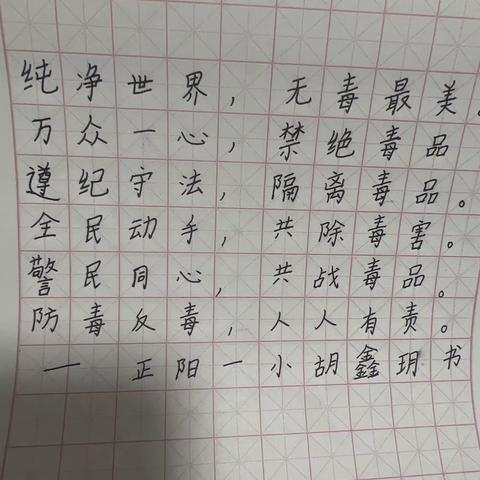 纯净世界,无毒最美。
万众一心,禁绝毒品
遵纪守法,隔离毒品。
全民动手,共除毒害。
警民同心,共战毒品。
防毒反毒,人人有责。
— 正阳一小胡鑫玥书